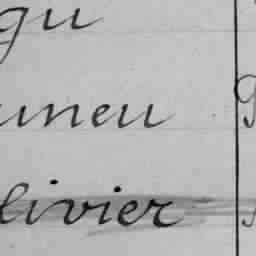 gu
uneu
livier